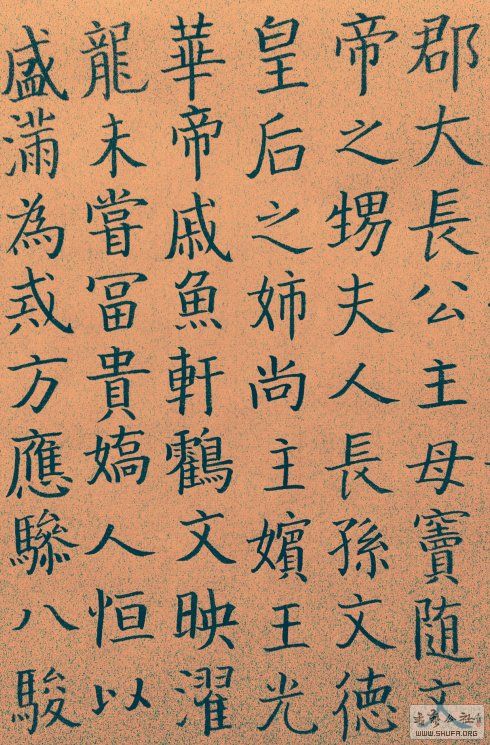 郡大長公主母竇随文
帝之甥夫人長孫文德
皇后之姉尚主嬪王光
華帝戚魚軒鸖文映濯
龍未嘗冨貴嬌人恒以
盛滿為戒方應驂八駿
WWW.SHUFA.ORG